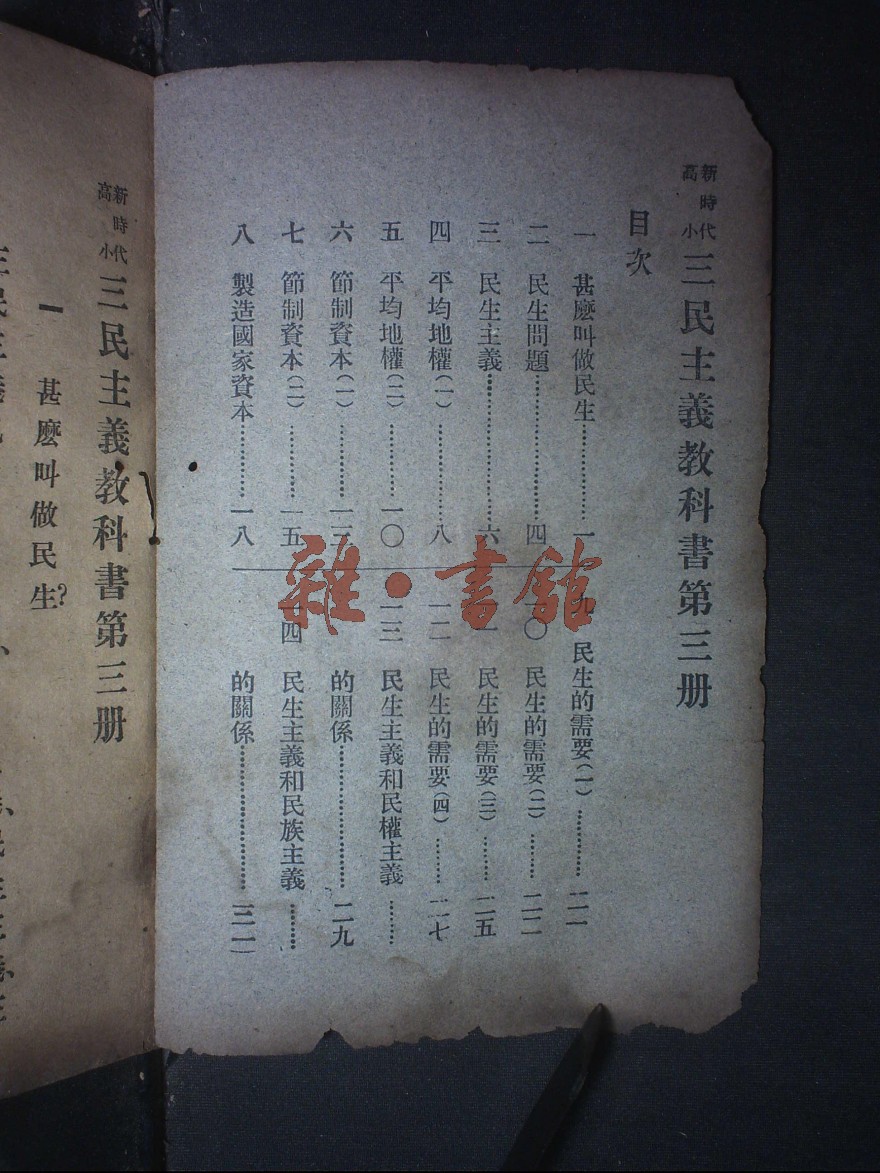 新時代高小 三民主義教科書第三册
目次
一 甚麼叫做民生……………一
二 民生問題……………四
三 民生主義……………六
四 平均地權(一)……………八
五 平均地權(二)…………一〇
六 節制資本(一)…………一二
七 節制資本(二)…………一五
八 製造國家資本…………一八
九 民生的需要(一)…………二一
一〇 民生的需要(二)………二二
一一 民生的需要(三)………二五
一二 民生的需要(四)………二七
一三 民生主義和民權主義………
的關係……………二九
一四 民生主義和民族主義………
的關係……………三一
新時代高小 三民主義教科書第三册
一 甚麼叫做民生?
雜•書館